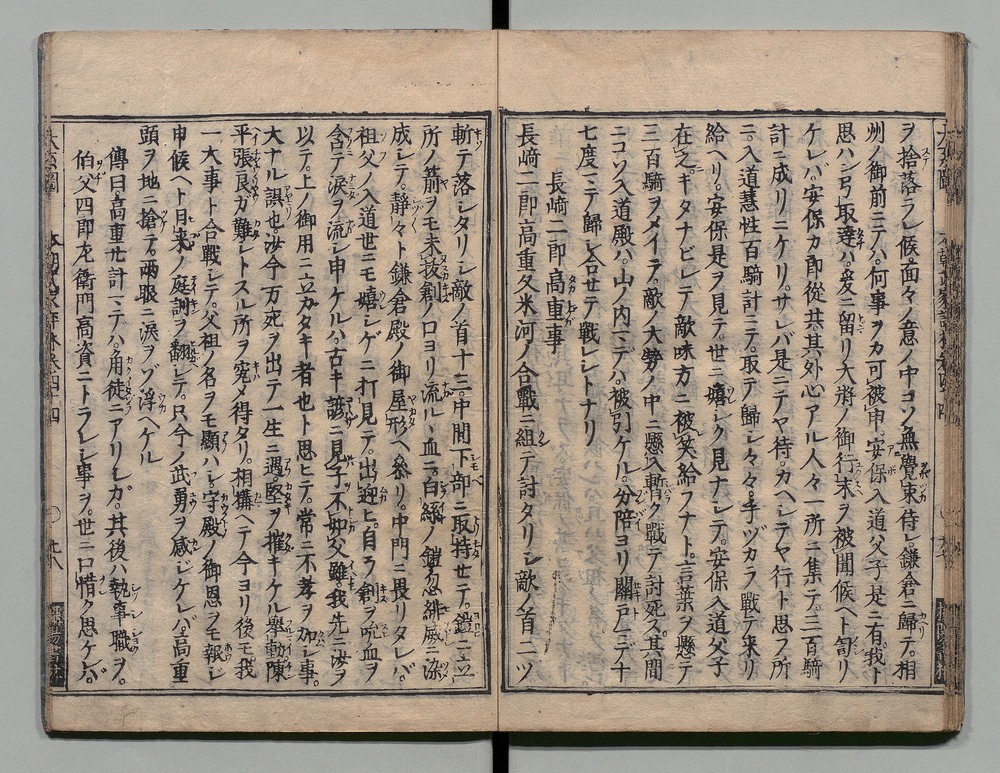 ヲ捨落ラレ候面々ノ意ノ中コソ無覺束侍レ鎌倉ニ歸テ相
州ノ御前ニテハ何事ヲカ可被申安保入道父子是ニ有我ト
思ハン弓取達ハ爰ニ留リ大將ノ御行末ヲ被聞候ヘト訇リ
ケレバ安保カ郎從其ノ外心アル人々一所ニ集テ三百騎
計ニ成リニケリサレバ是ニテヤ待カヘシテヤ行ト思フ所
ニ入道慧性百騎計ニテ取テ歸シ々々手ヅカラ戰テ來リ
給ヘリ安保是ヲ見テ世ニ嬉シク見ナシテ安保入道父子
在之キタナビレテ敵味方ニ被笑給フナト言葉ヲ懸テ
三百騎ヲメイテ敵ノ大勢ノ中ニ懸入暫ク戰テ討死ス其間
ニコソ入道殿ハ山ノ内マデハ被引ケル分陪ヨリ關戸マデ十
七度マテ歸シ合セテ戰レシトナリ
長崎二郎高重事
長崎二郎高重久米河ノ合戰ニ組テ討タリシ敵ノ首二ツ
斬テ落シタリシ敵ノ首十三中間下部ニ取持セテ鎧ニ立
所ノ箭ヲモ未抜創ノ口ヨリ流ルヽ血ニ白綠ノ鎧忽緋威ニ染
成シテ静々ト鎌倉殿ノ御屋形ヘ參リ中門ニ畏リタレバ
祖父ノ入道世ニモ嬉シケニ打見テ出迎ヒ自ラ創ヲ吮血ヲ
含テ涙ヲ流シ申ケルハ古キ諺ニ見子不如父雖我先ニ汝ヲ
以テ上ノ御用ニ立カタキ者也ト思ヒテ常ニ不孝ヲ加シ事
大ナル誤也汝今万死ヲ出テ一生ニ遇堅ヲ摧キケル擧動陳
平張良ガ難シトスル所ヲ究メ得タリ相搆ヘテ今ヨリ後モ我
一大事ト合戰シテ父祖ノ名ヲモ顯ハシ守殿ノ御恩ヲモ報シ
申候ヘト日來ノ庭訓ヲ翻シテ只今ノ武勇ヲ感シケレバ高重
頭ヲ地ニ搶テ兩眼ニ涙ヲゾ浮ヘケル
傳曰高重廿計マテハ角徒ニアリシカ其後ハ執事職ヲ
伯父四郎左衛門高資ニトラレシ事ヲ世ニ口惜ク思ケレバ